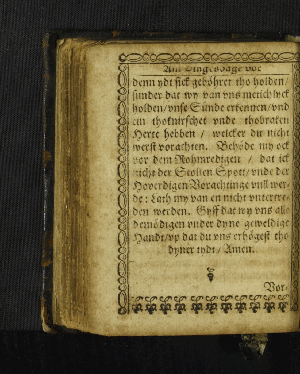 Am Dingesdage vor
denn ydt sick geböhret tho holden/
sunder dat wy van uns
holden/ vnse Sünde erkennen/ vnd
ein thoknirschet vnde thobraken
Herte hebben / welcker du nicht
werst vorachten. Behöde my ock
vor dem Rohmredigen / dat ick
nicht der Stolten Spott/ vnde der
Hoverdigen Vorachtinge vull wer-
de: Lath my van en nicht vntertre-
den werden. Gyff dat wy vns alle
demödigen vnder dyne geweldige
Handt/ vp dat du vns erhögest tho
dyner tydt/ Amen.
Vor-